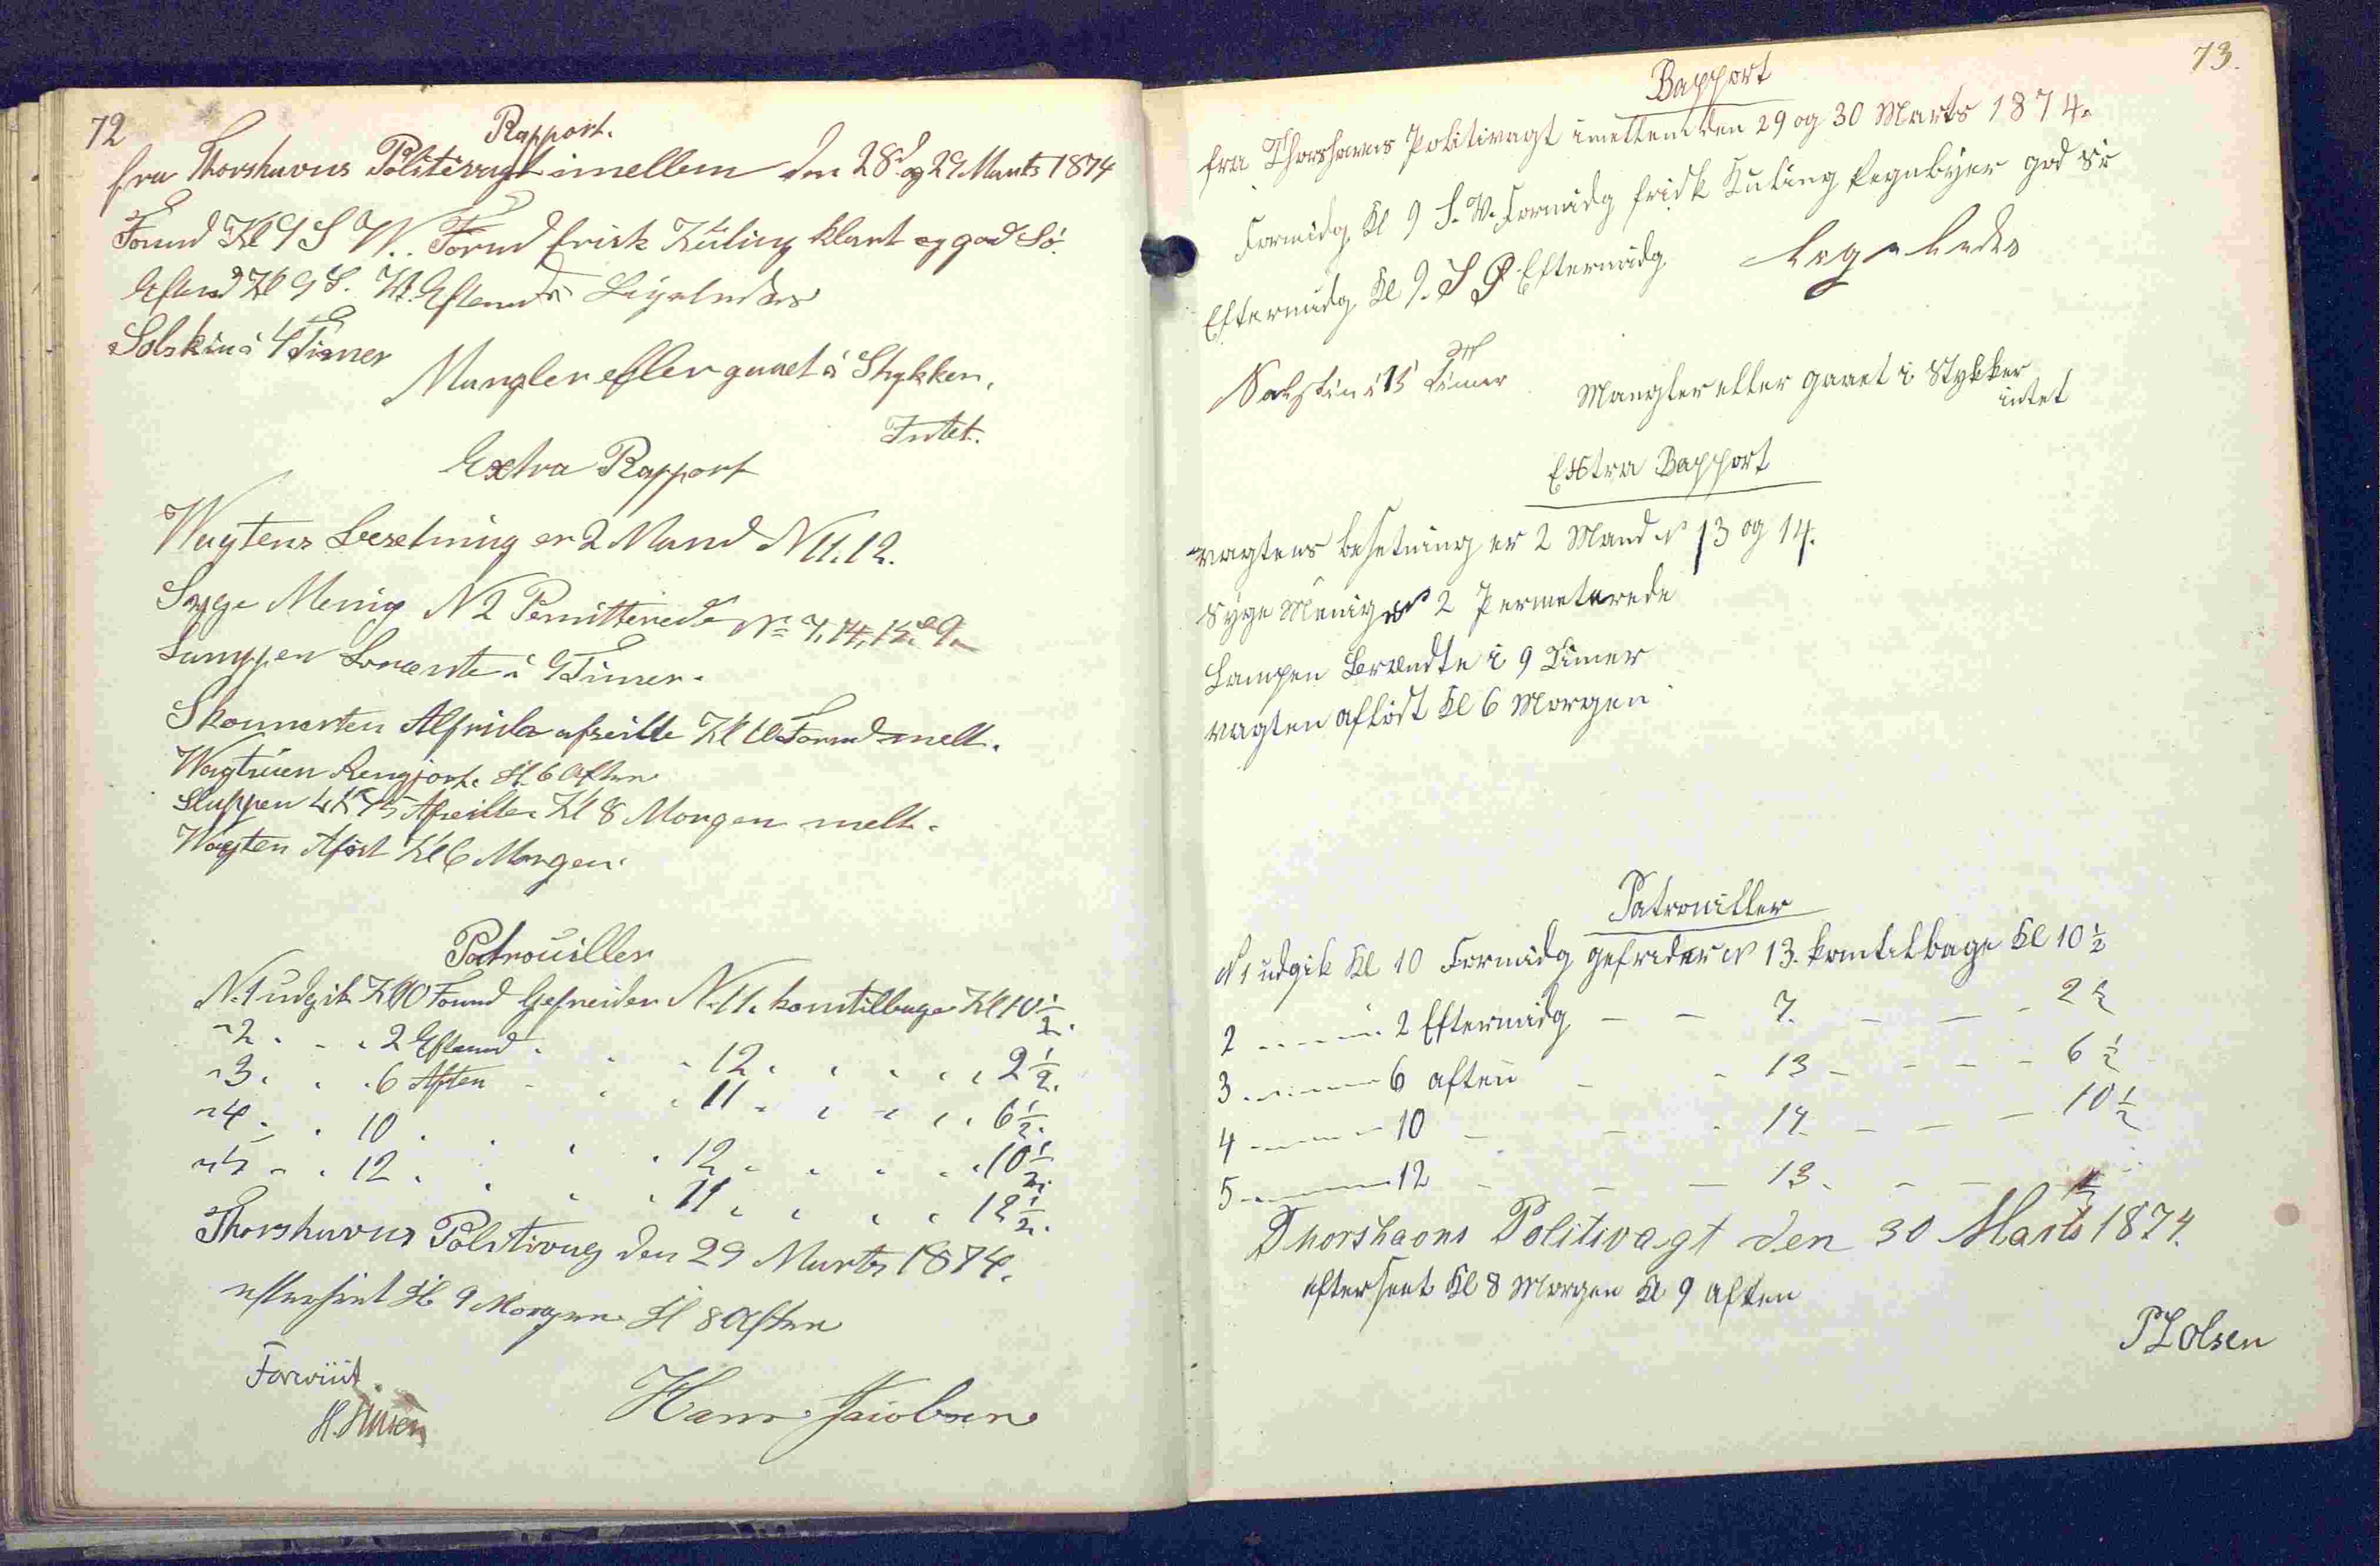 72
Rapport.
fra Thorshavns Politivagt imellem den 28d og 29 Marts 1874
Formd Kl 9 S W. Formd frisk Kuling klart og god Sö.
Eftmd Kl 9 S. W. Eftermd Ligeledes
Solskin i 4 Timer
Mangler eller gaaet i Stykker.
Intet.
Extra Rapport
Wagtens Besetning er 2 Mand N 11. 12.
Syge Menig N 2 Permitterede No 7, 14, 15
Lampen Brænte i 9 Timer.
Skonnerten Alfrida afseilte Kl 10 Formd melt.
Wagtstuen Rengjort. Kl. 6 Aften
Sluppen Afseilte Kl 8 Morgen melt.
Wagten Aflöst Kl 6 Morgen.
Patrouiller
N. 1 udgik Kl 10 Formd Gefreider N. 11. kom tilbage Kl 10 1/2.
" 2 . . . 2 Eftermd . . . 12 . . . . 2 1/2.
" 3 . . . 6 Aften . . . 11 . . . . 6 1/2.
" 4 . . 10 . . . . 12 . . . . 10 1/2.
" 5 . . 12 . . . . 11 . . . . 12 1/2.
Thorshavns Politivag den 29 Marts 1874.
efterseet Kl 9 Morgen Kl 8 Aften
Forviist
Hans Jacobsen
73.
Rapport
fra Thorshavns Politivagt imellem den 29 og 30 Marts 1874.
Formidg Kl 9 S. V. Formidg fridk Kuling Regnbyer god Sö
Eftermidg Kl 9. S Ø Eftermidg Ligeledes
Solskin i 1 1/2 Timer
Mangler eller gaaet i Stykker
intet
Extra Rapport
vagtens besetning er 2 Mand N 13 og 14.
Syge Menig N 2 Permeterede
Lampen Brændte i 9 Timer
vagten aflöst Kl 6 Morgen
Patrouiller
N 1 udgik Kl 10 Formidg gefrider N 13. kom tilbage Kl 10 1/2
2 - - - - 2 Eftermidg - - 7. - - - 2 1/2
3 - - - - 6 aften - - 13 - - - - 6 1/2
4 - - - - 10 - - - 14 - - - 10 1/2
5 - - - - 12 - - - 13. - - 1/2
Thorshaons Politivagt den 30 Marts 1874.
efterseet Kl 8 Morgen Kl 9 aften
P L Olsen